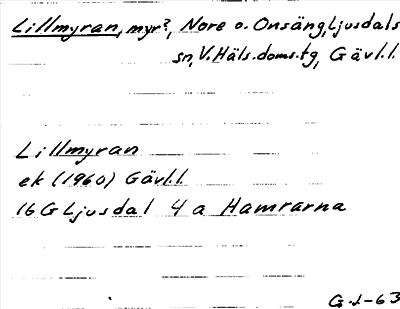 Lillmyran, myr?, Nore o. Onsäng, Ljusdals
sn, V. Häls. doms. tg, Gävl. l.
Lillmyran
ek (1960) Gävl. l.
16 G Ljusdal 4 a Hamrarna
G. J-63